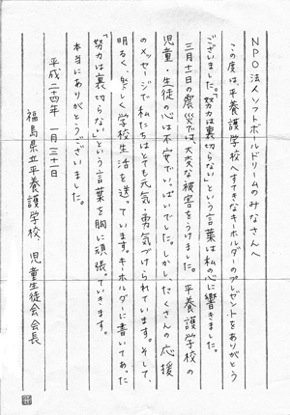 NPO法人ソフトボールドリームのみなさんへ
この度は平養護学校へすてきなキーホルダーのプレゼントをありがとう
ございました。「努力は裏切らない」という言葉は私の心に響きました。
三月十一日の震災では大変な被害をうけました。平養護学校の
児童・生徒の心は不安でいっぱいでした。しかし、たくさんの応援
のメッセージで私たちはとても元気・勇気づけられています。そして、
明るく、楽しく学校生活を送っています。キーホルダーに書いてあった
「努力は裏切らない」という言葉を胸に頑張っていきます。
本当にありがとうございました。
平成二十四年 一月三十一日
福島県立平養護学校 児童生徒会会長